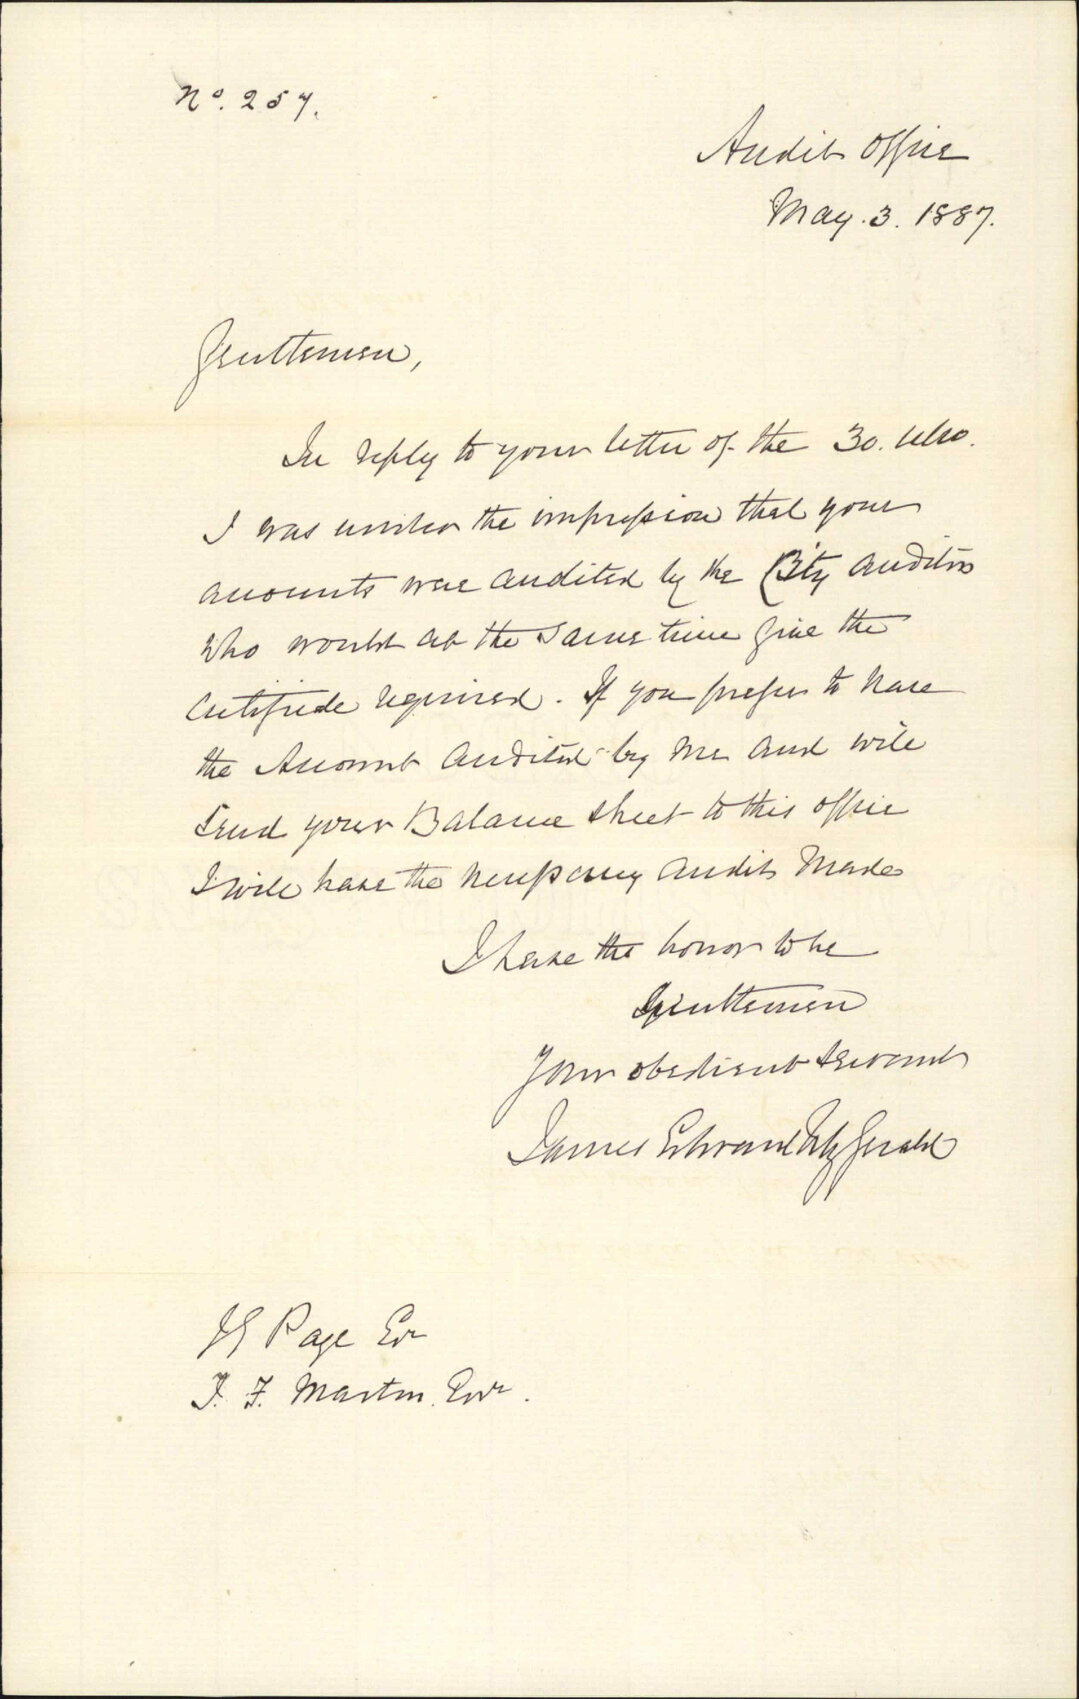 No. 257.
Audit Office
May. 3. 1887.
Gentlemen,
In reply to your letter of the 30. ulto.
I was under the impression that your
accounts were audited by the City Auditors
who would at the same time give the
Certificate required. If you prefer to have
the Account audited by me and will
send your Balance sheet to this office
I will have the necessary audit made
I have the honor to be
Gentlemen
Your obedient servant
James Edward FitzGerald
Page Esr
J. F. Martin. Esqr.